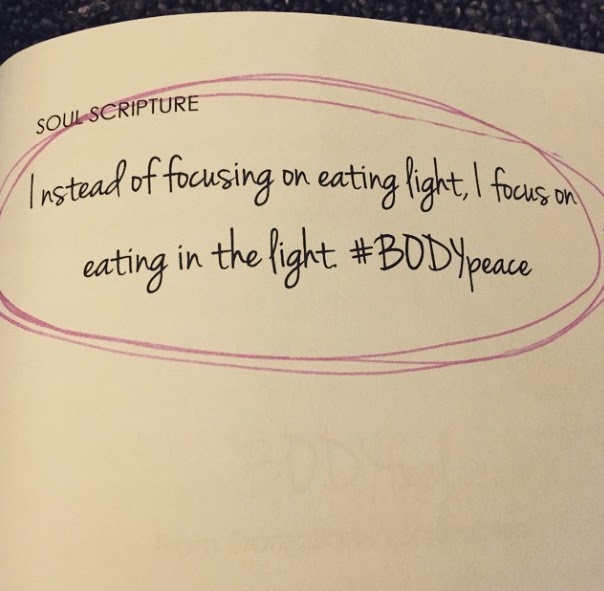 SOUL SCRIPTURE
Instead of focusing on eating light, I focus on
eating in the light. #BODYpeace